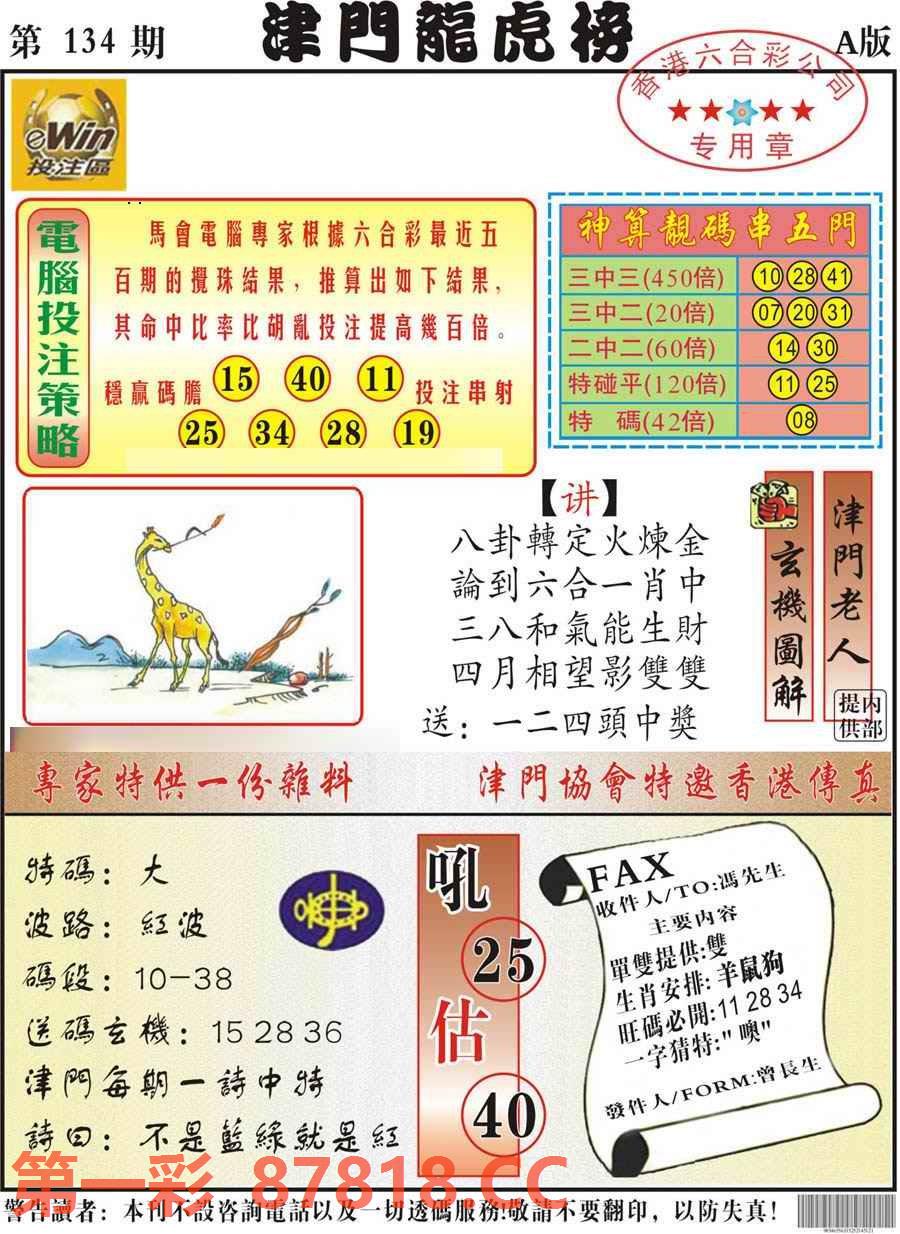 第 134 期
津門龍虎榜
A版
香港六合彩公司
专用章
eWin
投注區
電腦投注策略
馬會電腦專家根據六合彩最近五
百期的攪珠結果，推算出如下結果，
其命中比率比胡亂投注提高幾百倍。
穩贏碼膽 15 40 11 投注串射
25 34 28 19
神算靚碼串五門
三中三(450倍) 10 28 41
三中二(20倍) 07 20 31
二中二(60倍) 14 30
特碰平(120倍) 11 25
特 碼(42倍) 08
【讲】
八卦轉定火煉金
論到六合一肖中
三八和氣能生財
四月相望影雙雙
送：一二四頭中獎
玄機圖解
津門老人
提供
内部
專家特供一份雜料
津門協會特邀香港傳真
特碼：大
波路：紅波
碼段：10-38
送碼玄機：15 28 36
津門每期一詩中特
詩曰：不是藍綠就是紅
吼
25
估
40
FAX
收件人/TO:馮先生
主要内容
單雙提供:雙
生肖安排:羊鼠狗
旺碼必開:11 28 34
一字猜特:"噢"
發件人/FORM:曾長生
第一彩 87818.CC
警告讀者：本刊不設咨詢電話以及一切透碼服務!敬請不要翻印，以防失真！